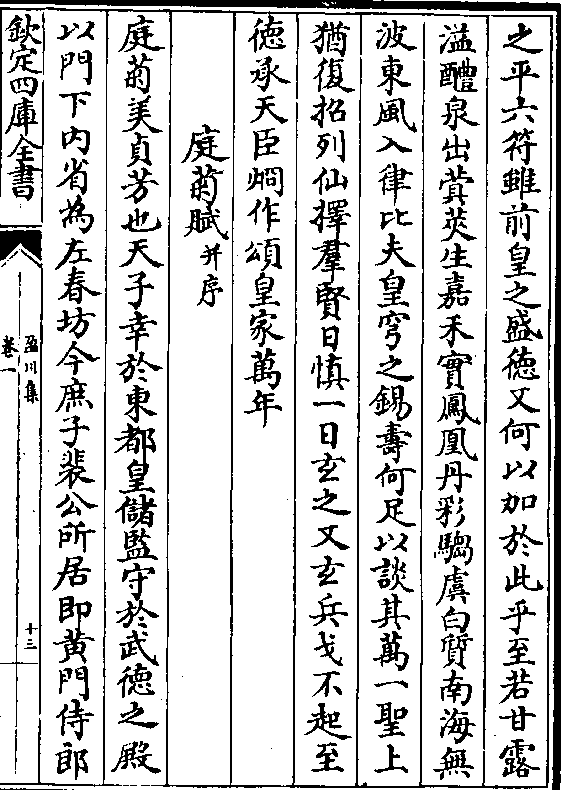 之平六符雖前皇之盛徳又何以加於此乎至若甘露
溢醴泉出蓂莢生嘉禾實鳳凰丹彩騶虞白質南海無
波東風入律比夫皇穹之錫壽何足以談其萬一聖上
猶復招列仙擇羣賢日慎一日玄之又玄兵戈不起至
徳承天臣烱作頌皇家萬年
庭菊賦并序
庭菊美貞芳也天子幸於東都皇儲監守於武徳之殿
以門下内省為左春坊今庶子裴公所居即黄門侍郎
欽定四庫全書
盈川集
卷一
十三